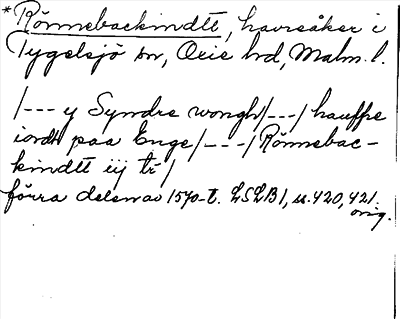 *Rönnebackindtt, havreåker i
Tygelsjö sn, Oxie hd, Malm. l.
/--- y Syndre wongh/---/ hauffre
iordt paa Enge/---/Rönnebac-
kindtt iij tr /
förra delen av 1570-t. LSLB1, ss. 420, 421.
orig.